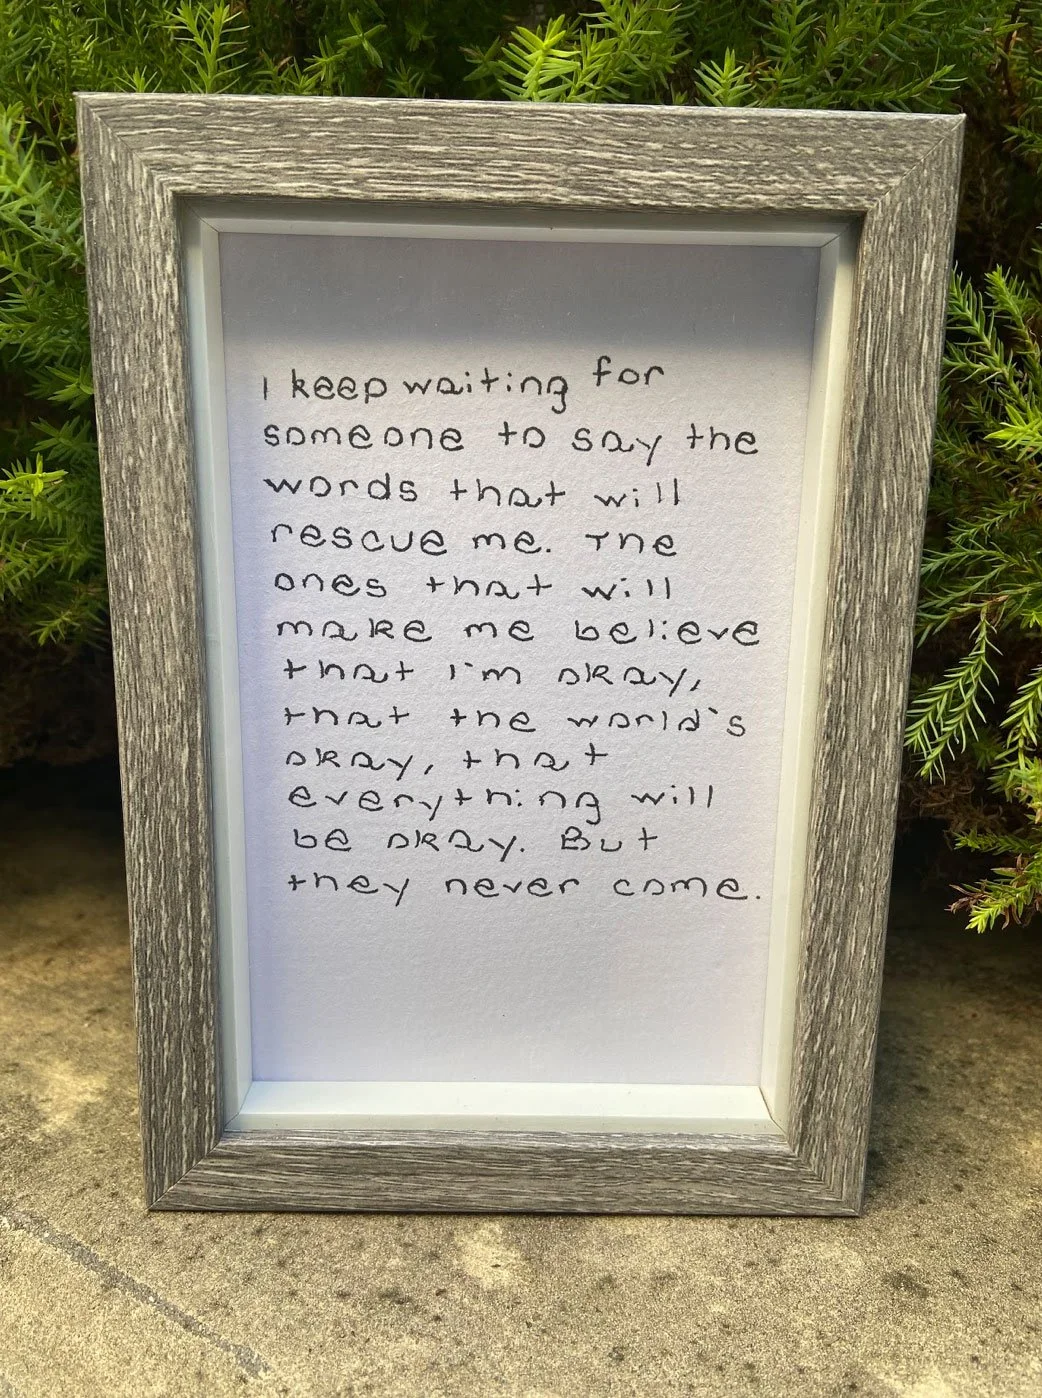 I keep waiting for
someone to say the
words that will
rescue me. The
ones that will
make me believe
that I'm okay,
that the world's
okay, that
everything will
be okay. But
they never come.